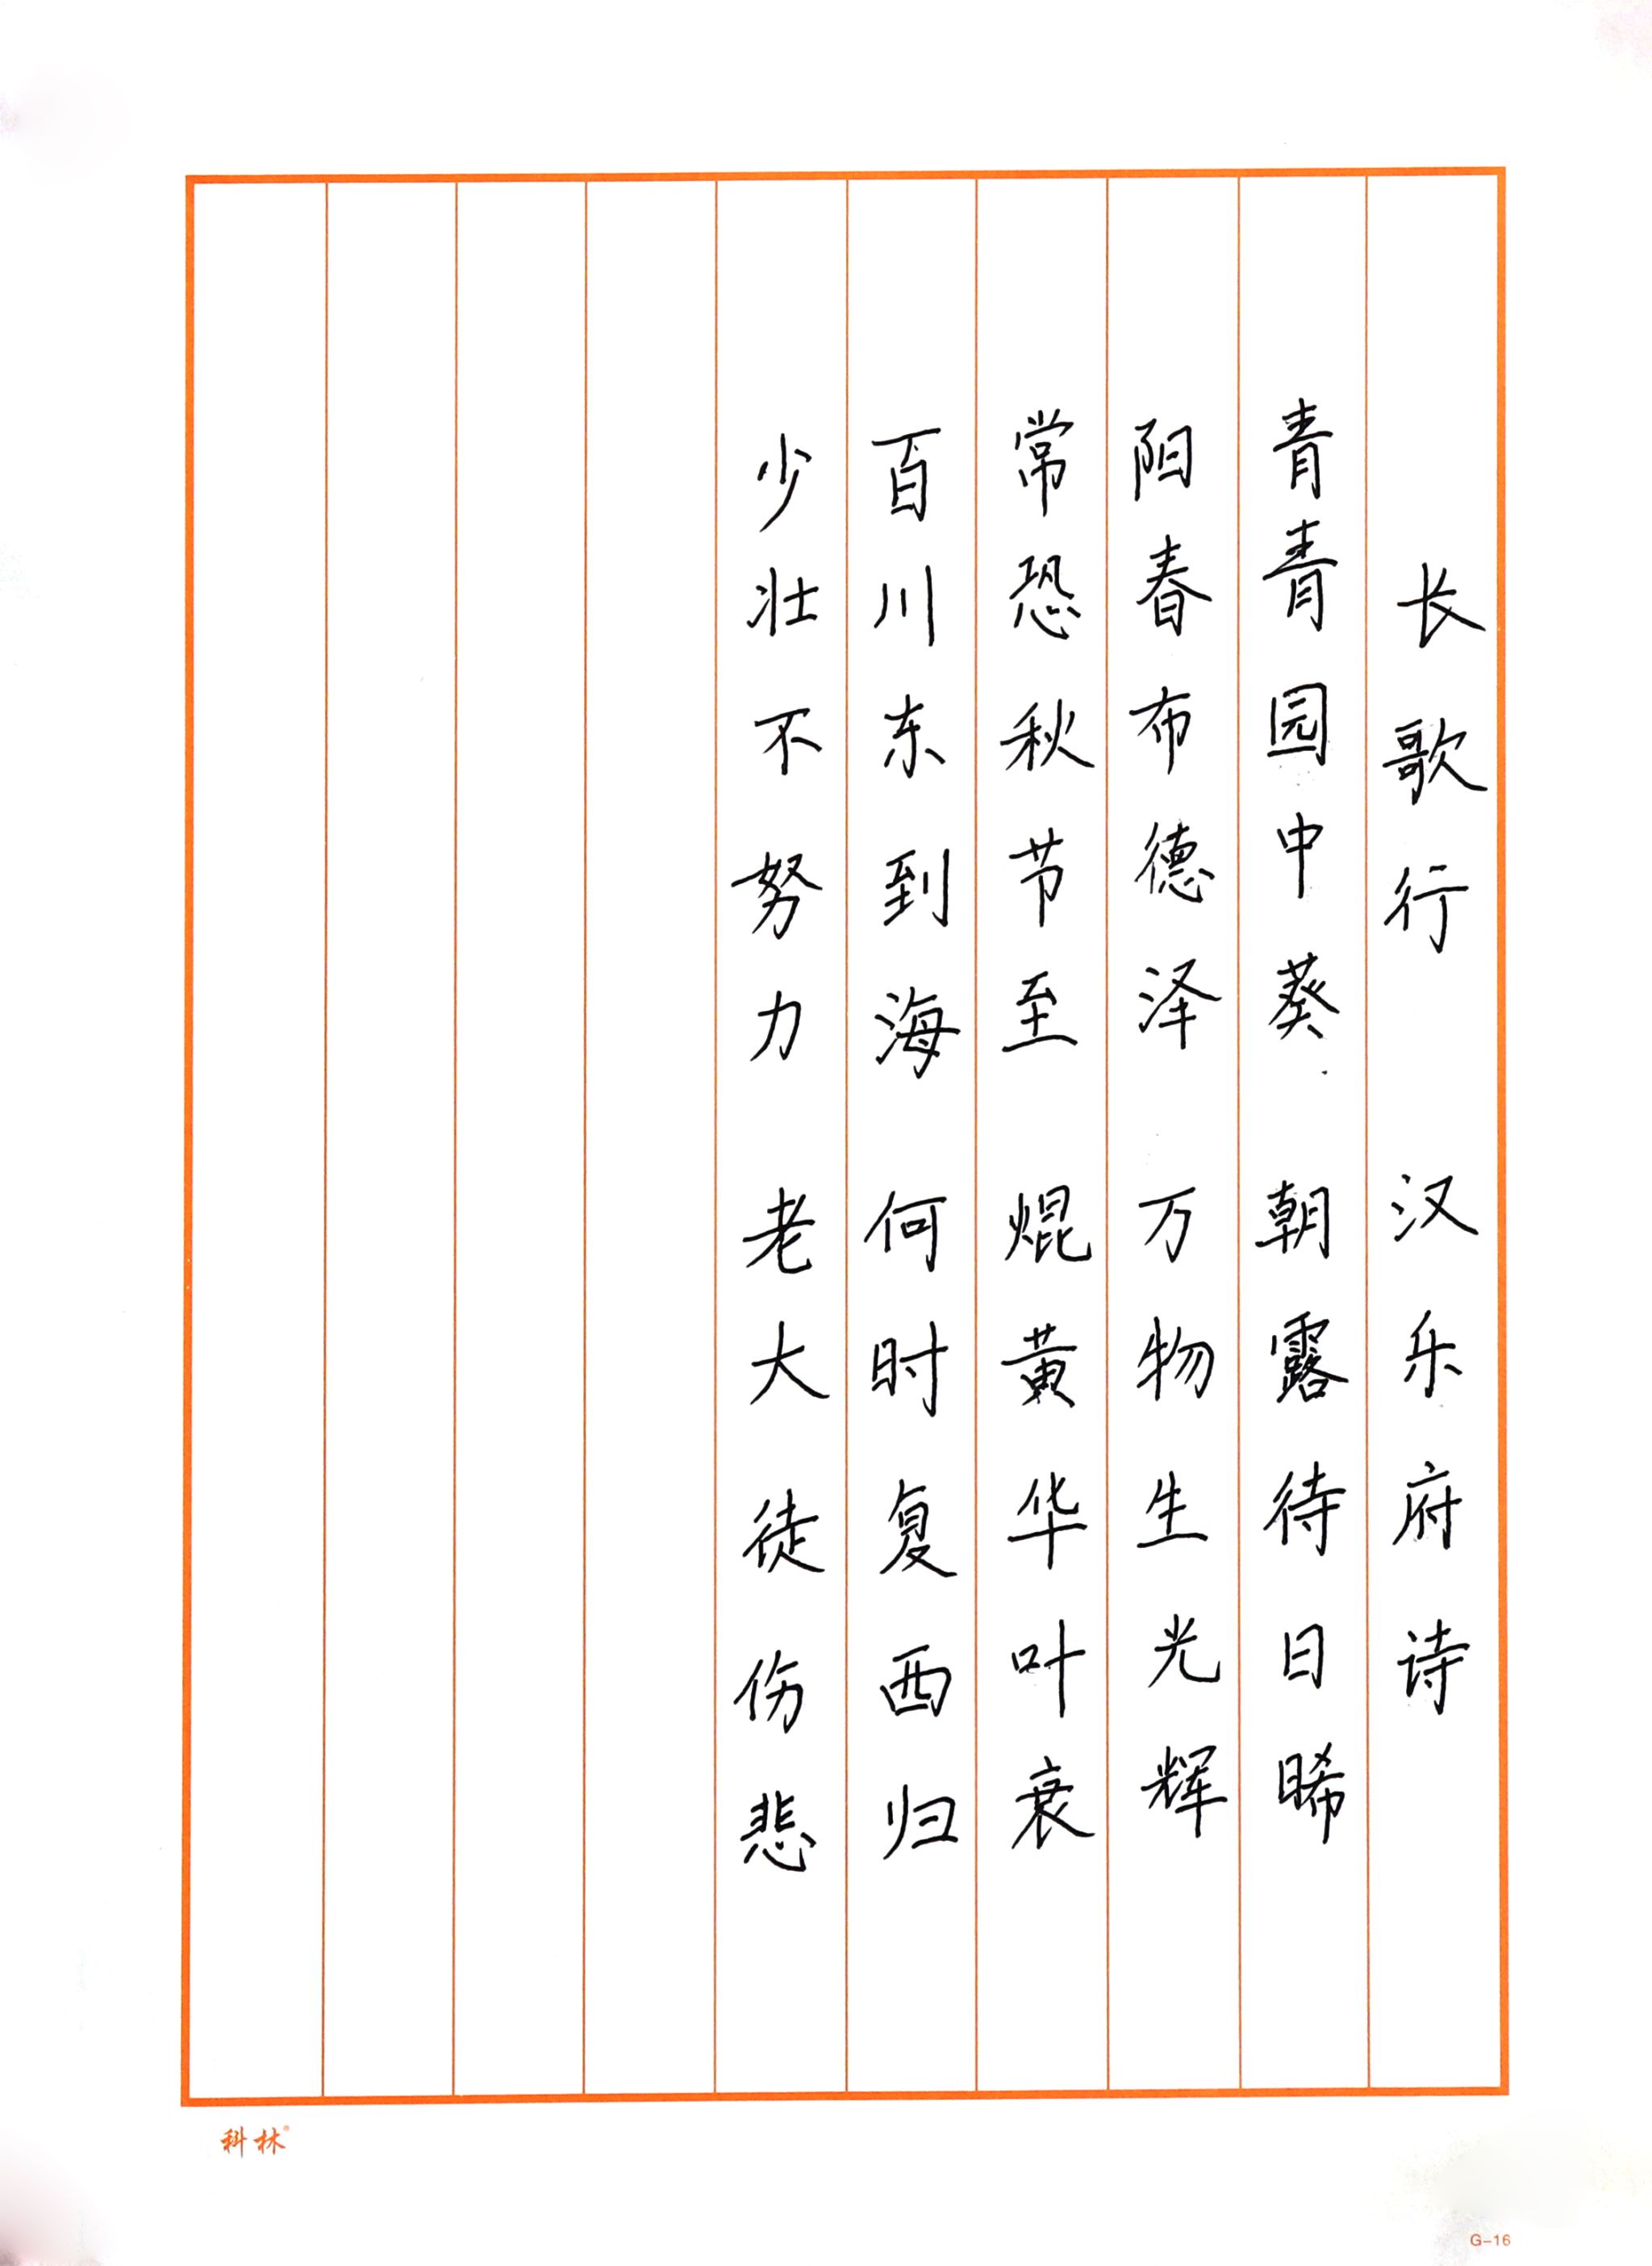 长歌行 汉乐府诗
青青园中葵 朝露待日晞
阳春布德泽 万物生光辉
常恐秋节至 焜黄华叶衰
百川东到海 何时复西归
少壮不努力 老大徒伤悲
科林®
G-16